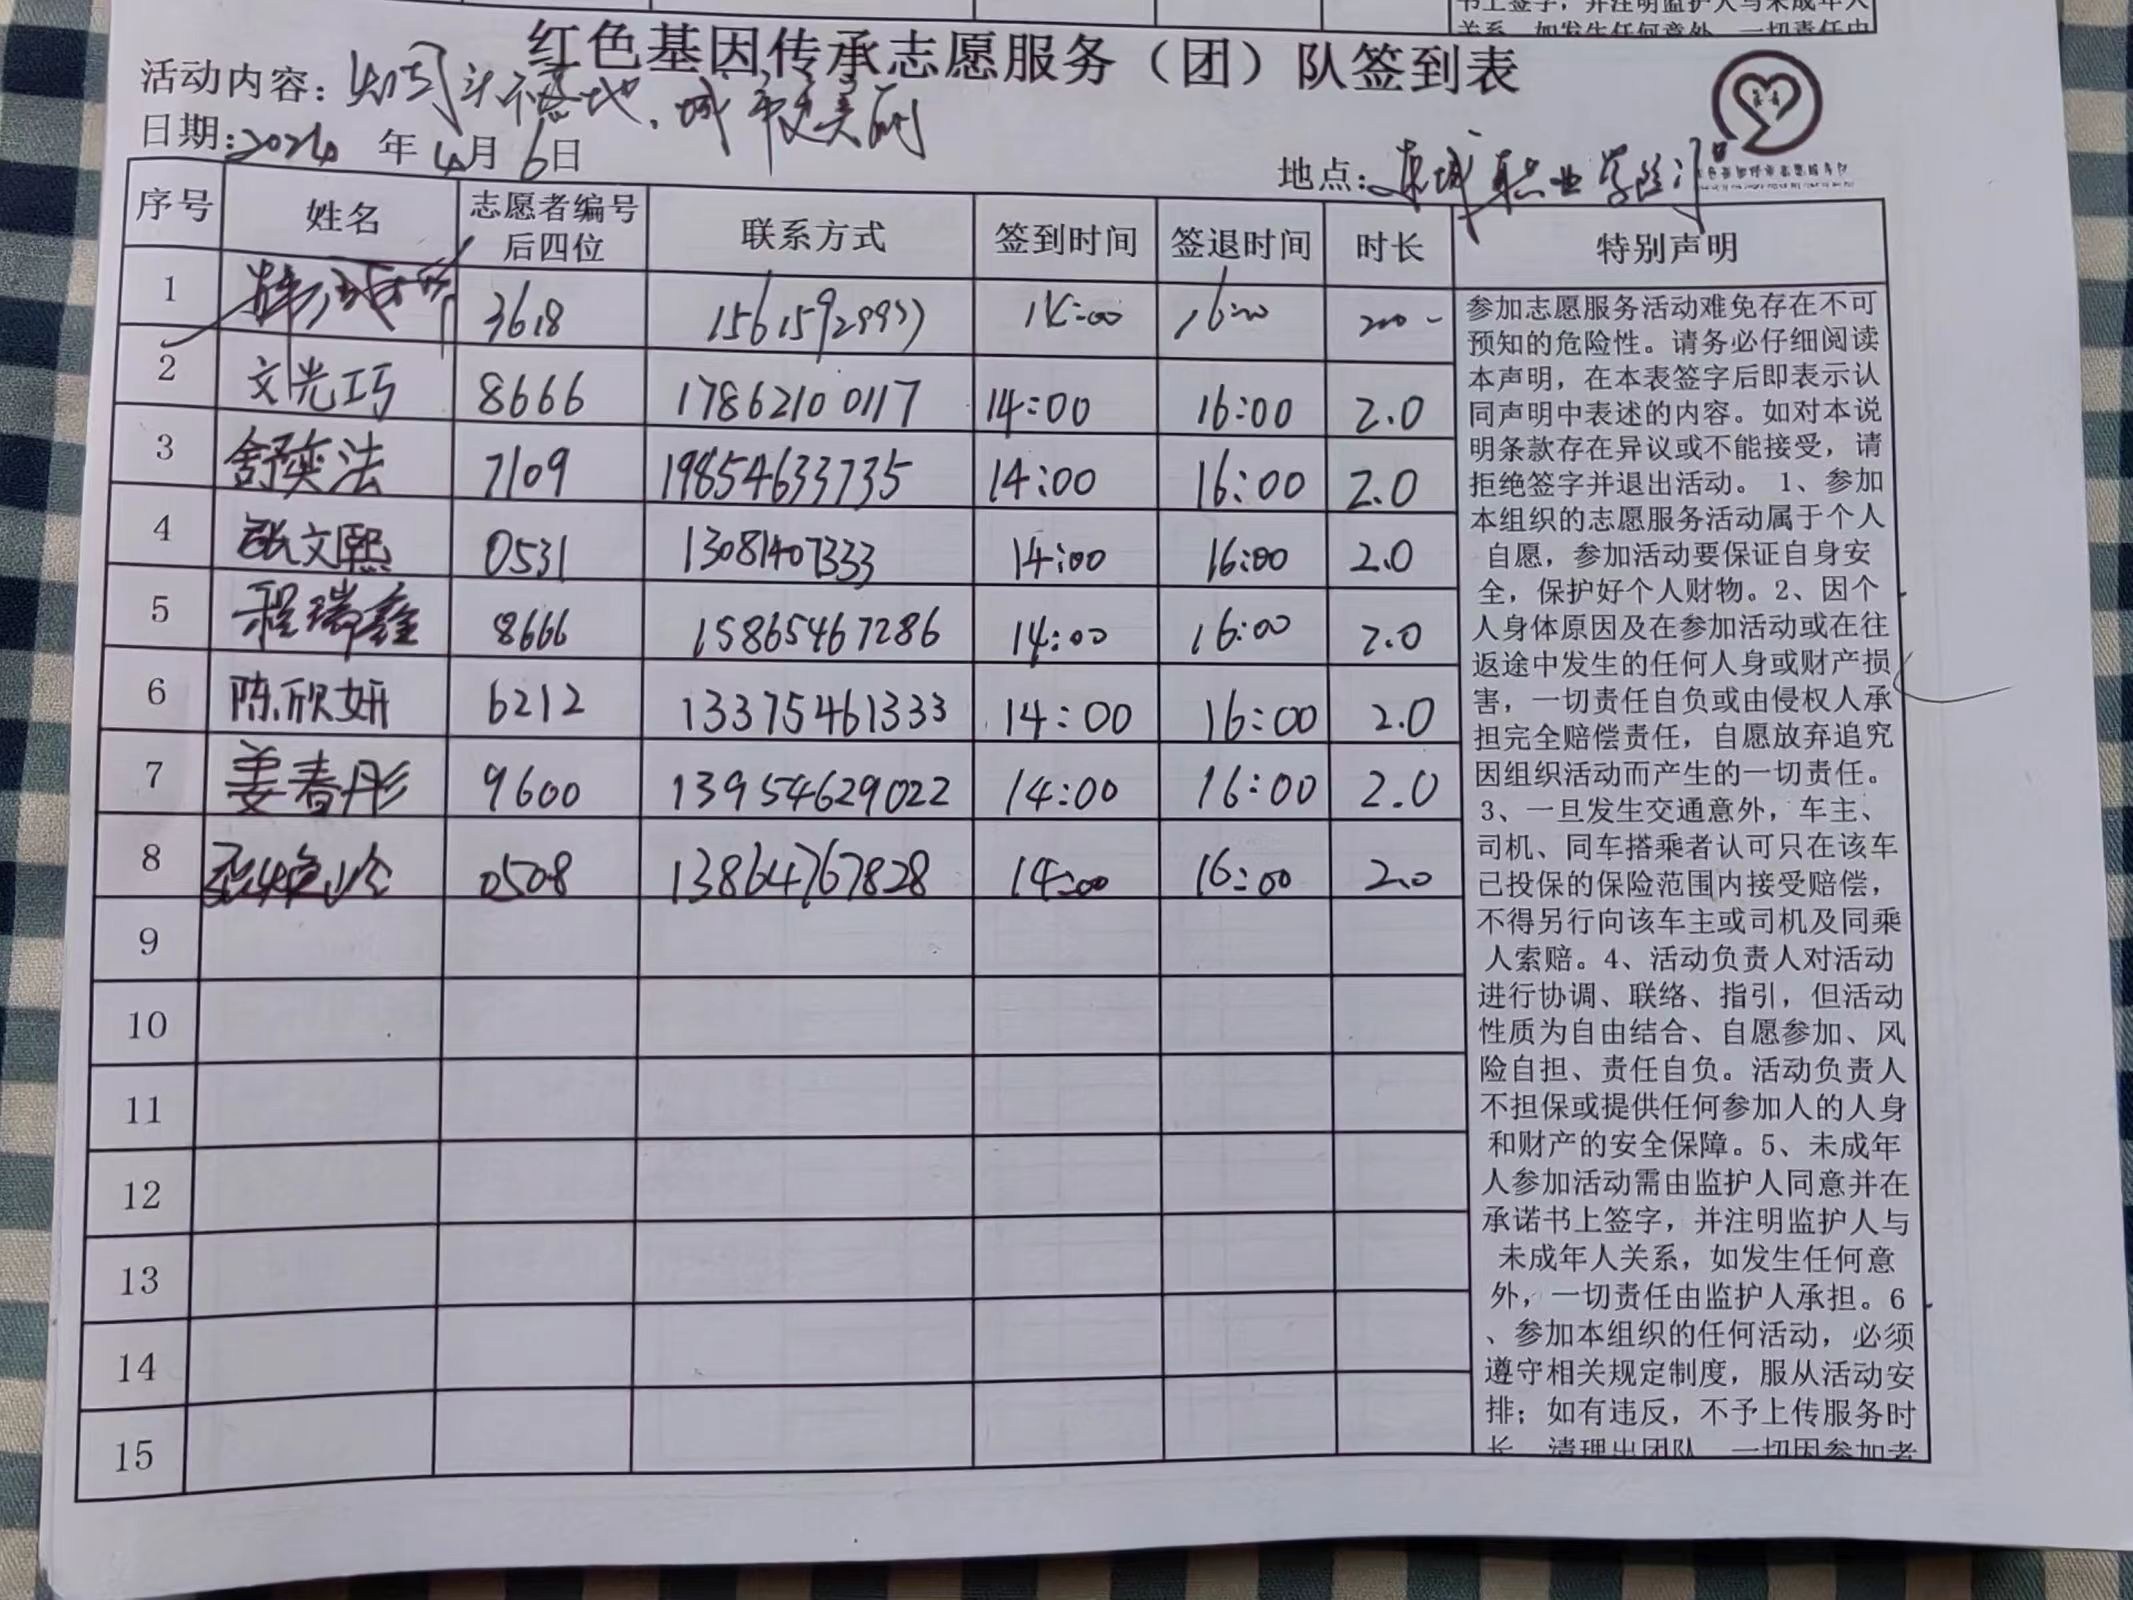 书上签字，并注明监护人与未成年人
关系，如发生任何意外，一切责任由
红色基因传承志愿服务（团）队签到表
活动内容：烟头不落地，城市更美丽
日期：2024年4月6日
地点：东城职业学院
序号 姓名 志愿者编号后四位 联系方式 签到时间 签退时间 时长 特别声明
1 3618 14:00 16:00
2 文光巧 8666 17862100117 14:00 16:00 2.0
3 舒奕法 7109 19854633735 14:00 16:00 2.0
4 张文熙 0531 13081407333 14:00 16:00 2.0
5 程瑞鑫 8666 15865467286 14:00 16:00 2.0
6 陈欣妍 6212 13375461333 14:00 16:00 2.0
7 姜春彤 9600 13954629022 14:00 16:00 2.0
8 0508 13864767828 14:00 16:00 2.0
9
10
11
12
13
14
15
参加志愿服务活动难免存在不可
预知的危险性。请务必仔细阅读
本声明，在本表签字后即表示认
同声明中表述的内容。如对本说
明条款存在异议或不能接受，请
拒绝签字并退出活动。 1、参加
本组织的志愿服务活动属于个人
自愿，参加活动要保证自身安
全，保护好个人财物。2、因个
人身体原因及在参加活动或在往
返途中发生的任何人身或财产损
害，一切责任自负或由侵权人承
担完全赔偿责任，自愿放弃追究
因组织活动而产生的一切责任。
3、一旦发生交通意外，车主、
司机、同车搭乘者认可只在该车
已投保的保险范围内接受赔偿，
不得另行向该车主或司机及同乘
人索赔。4、活动负责人对活动
进行协调、联络、指引，但活动
性质为自由结合、自愿参加、风
险自担、责任自负。活动负责人
不担保或提供任何参加人的人身
和财产的安全保障。5、未成年
人参加活动需由监护人同意并在
承诺书上签字，并注明监护人与
未成年人关系，如发生任何意
外，一切责任由监护人承担。6
、参加本组织的任何活动，必须
遵守相关规定制度，服从活动安
排；如有违反，不予上传服务时
长，清理出团队，一切因参加者